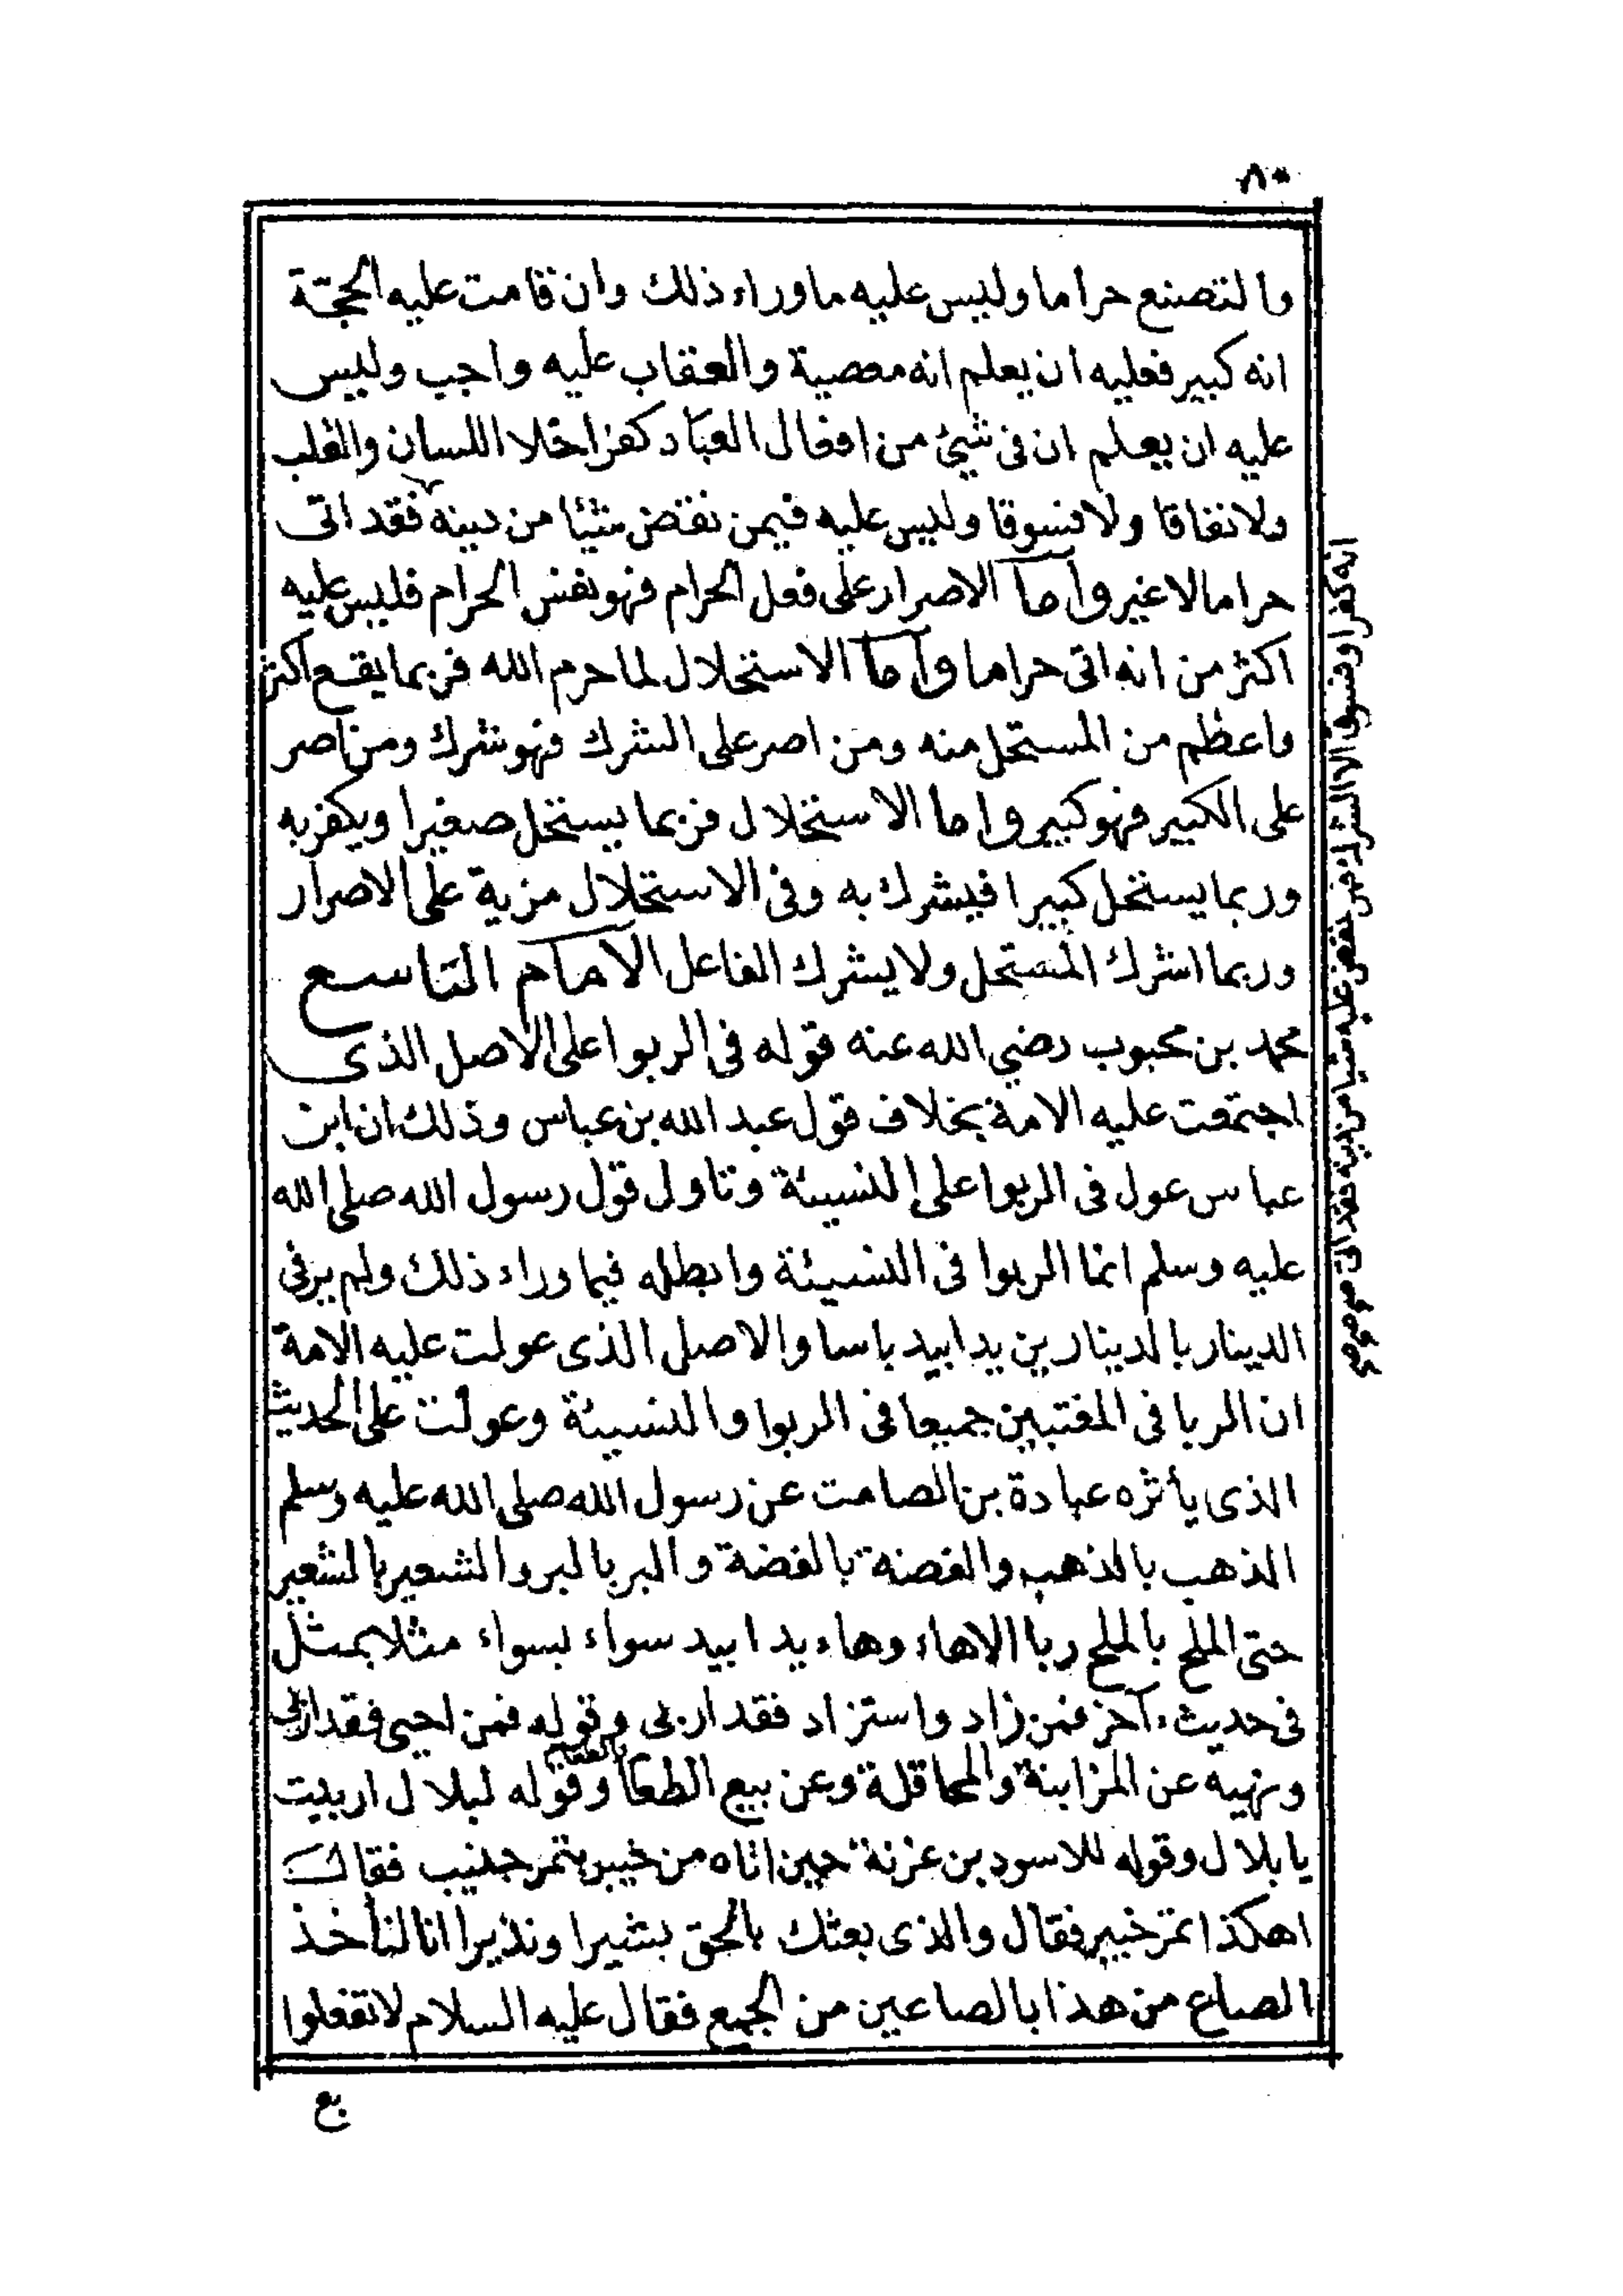 ٨٠
والتصنع حراما وليس عليه ما وراء ذلك وان قامت عليه الحجة
انه كبير فعليه ان يعلم انه معصية والعقاب عليه واجب وليس
عليه ان يعلم ان فى شيئ من افعال العباد كفرا خلا اللسان والقلب
ولا نفاقا ولا فسوقا وليس عليه فيمن نقض شيئا من دينه فقد اتى
حراما لا غير وأما الاصرار على فعل الحرام فهو نفس الحرام فليس عليه
اكثر من انه اتى حراما وأما الاستحلال لما حرم الله فربما يقع اكثر
واعظم من المستحل منه ومن اصر على الشرك فهو شرك ومن اصر
على الكبير فهو كبير واما الاستحلال فربما يستحل صغيرا ويكفر به
وربما يستحل كبيرا فيشرك به وفى الاستحلال مزية على الاصرار
وربما اشرك المستحل ولا يشرك الفاعل الامام التاسع
محمد بن محبوب رضي الله عنه قوله فى الربوا على الاصل الذى
اجتمعت عليه الامة بخلاف قول عبد الله بن عباس وذلك ان ابن
عباس عول فى الربوا على النسيئة وتاول قول رسول الله صلى الله
عليه وسلم انما الربوا فى النسيئة وابطله فيما وراء ذلك ولم ير فى
الدينار بالدينارين يدا بيد باسا والاصل الذى عولت عليه الامة
ان الربا فى المغتبين جميعا فى الربوا والنسيئة وعولت على الحديث
الذى يأثره عبادة بن الصامت عن رسول الله صلى الله عليه وسلم
الذهب بالذهب والفضة بالفضة والبر بالبر والشعير بالشعير
حتى الملح بالملح ربا الا هاء وهاء يدا بيد سواء بسواء مثلا بمثل
فى حديث ء آخر فمن زاد واستزاد فقد اربى وقوله فمن اجبى فقد اربى
ونهيه عن المزابنة والمحاقلة وعن بيع الطعام بالطعام وقوله لبلال اربيت
يا بلال وقوله للاسود بن غزية حين اتاه من خيبر بتمر جنيب فقال
اهكذا تمر خيبر فقال والذى بعثك بالحق بشيرا ونذيرا انا لنأخذ
الصاع من هذا بالصاعين من الجمع فقال عليه السلام لا تفعلوا
انه كفر او فسوق الا الشرك فمن نقض عليه شيئا من دينه فقد اتى
بع